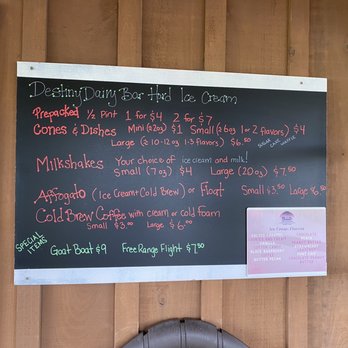 Destiny Dairy Bar Hard Ice Cream
Prepacked ½ Pint 1 for $4 2 for $7
Cones & Dishes Mini (2oz) $1 Small (6oz 1 or 2 flavors) $4
Large (10-12oz 1-3 flavors) $6.50
SUGAR CAKE WAFFLE
Milkshakes Your choice of ice cream and milk!
Small (7oz) $4 Large (20oz) $7.50
Affogato (Ice Cream + Cold Brew) or Float Small $3.50 Large $6.50
Cold Brew Coffee with cream or cold foam
Small $3.00 Large $6.00
SPECIAL ITEMS
Goat Boat $9 Free Range Flight $7.50
BUTTER PECAN